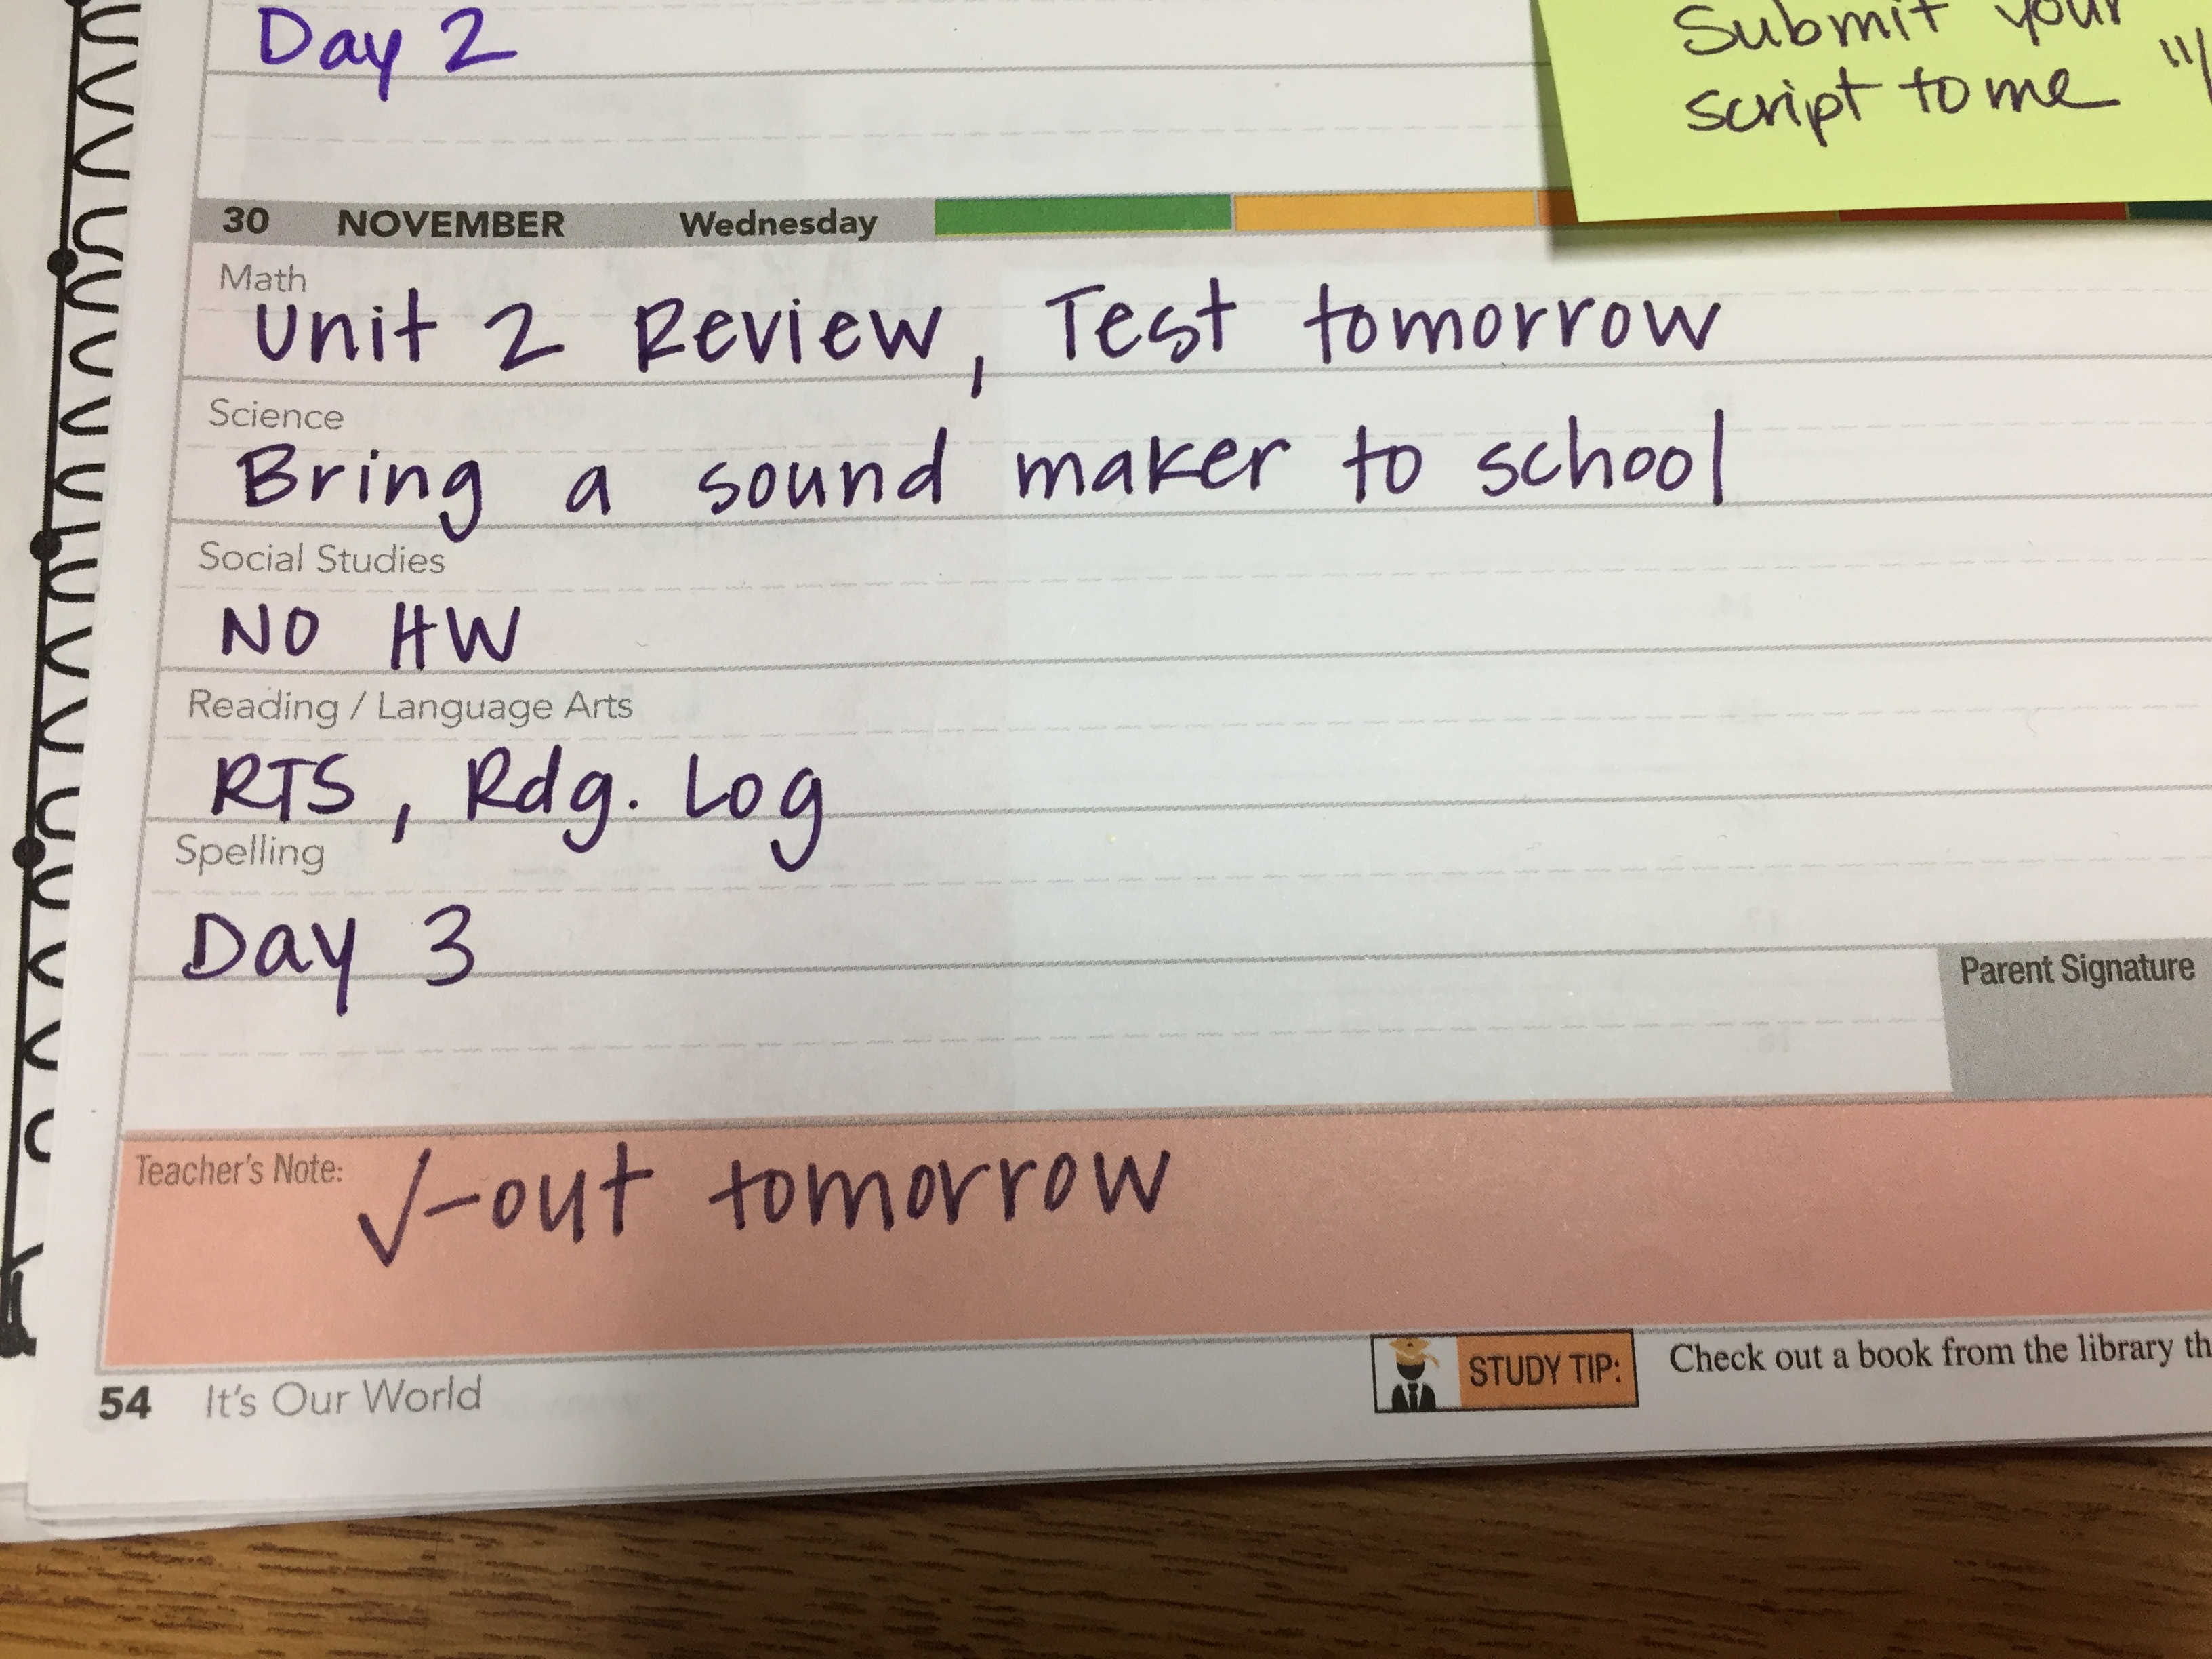 Day 2
Submit your
script to me
30 NOVEMBER Wednesday
Math
Unit 2 Review, Test tomorrow
Science
Bring a sound maker to school
Social Studies
NO HW
Reading / Language Arts
RTS, Rdg. Log
Spelling
Day 3
Parent Signature
Teacher's Note: √-out tomorrow
54 It's Our World
STUDY TIP: Check out a book from the library